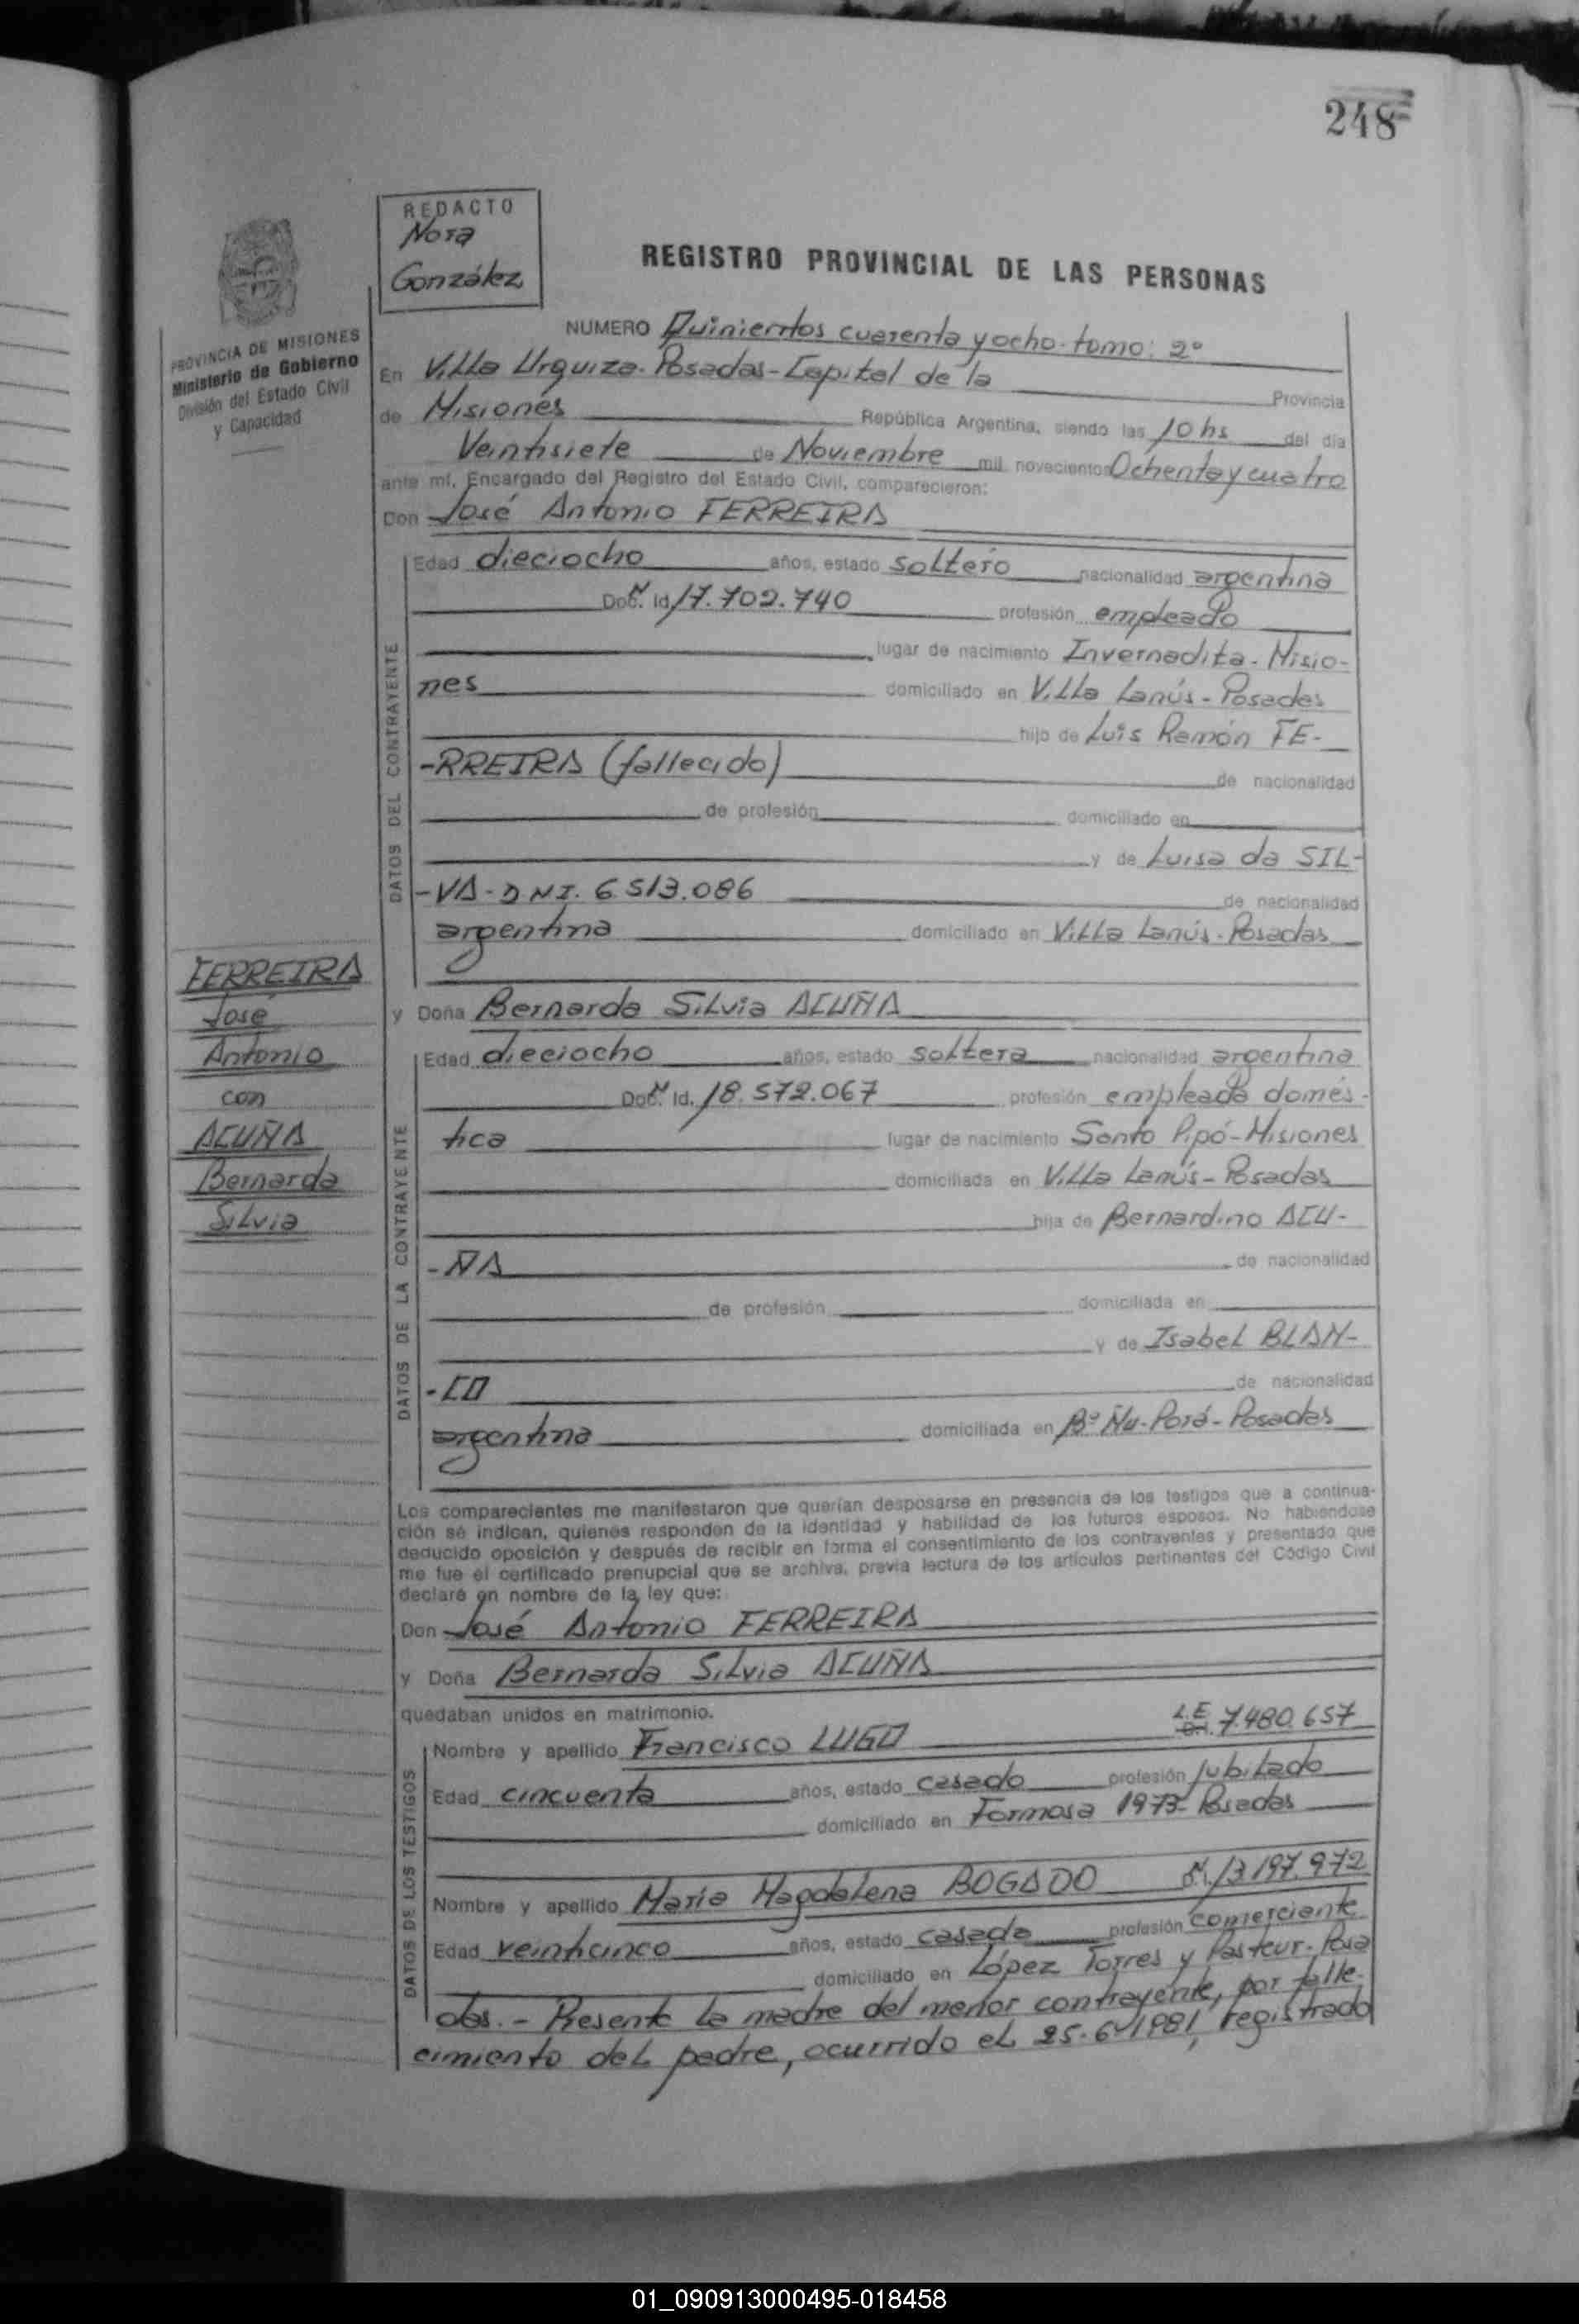 248
REDACTO
Nora
González
REGISTRO PROVINCIAL DE LAS PERSONAS
PROVINCIA DE MISIONES
Ministerio de Gobierno
División del Estado Civil
y Capacidad
NUMERO Quinientos cuarenta y ocho - tomo: 2º
En Villa Urquiza - Posadas - Capital de la Provincia
de Misiones República Argentina, siendo las 10 hs del día
Veintisiete de Noviembre mil novecientos Ochenta y cuatro
ante mí, Encargado del Registro del Estado Civil, comparecieron:
Don José Antonio FERREIRA
DATOS DEL CONTRAYENTE
Edad dieciocho años, estado soltero nacionalidad argentina
Doc. Id. Nº 17.702.740 profesión empleado
lugar de nacimiento Invernadita - Misio-
nes domiciliado en Villa Lanús - Posadas
hijo de Luis Ramón FE-
-RREIRA (fallecido) de nacionalidad
de profesión domiciliado en
y de Luisa da SIL-
-VA - D.N.I. 6.513.086 de nacionalidad
argentina domiciliado en Villa Lanús - Posadas
FERREIRA
José
Antonio
con
ACUÑA
Bernarda
Silvia
y Doña Bernarda Silvia ACUÑA
DATOS DE LA CONTRAYENTE
Edad dieciocho años, estado soltera nacionalidad argentina
Doc. Id. Nº 18.572.067 profesión empleada domés-
tica lugar de nacimiento Santo Pipó - Misiones
domiciliada en Villa Lanús - Posadas
hija de Bernardino ACU-
-ÑA de nacionalidad
de profesión domiciliada en
y de Isabel BLAN-
-CO de nacionalidad
argentina domiciliada en Bº Ñu-Porá - Posadas
Los comparecientes me manifestaron que querían desposarse en presencia de los testigos que a continua-
ción se indican, quienes responden de la identidad y habilidad de los futuros esposos. No habiéndose
deducido oposición y después de recibir en forma el consentimiento de los contrayentes y presentado que
me fue el certificado prenupcial que se archiva, previa lectura de los artículos pertinentes del Código Civil
declaré en nombre de la ley que:
Don José Antonio FERREIRA
y Doña Bernarda Silvia ACUÑA
quedaban unidos en matrimonio.
DATOS DE LOS TESTIGOS
Nombre y apellido Francisco LUGO L.E. 7.480.657
Edad cincuenta años, estado casado profesión jubilado
domiciliado en Formosa 1973 - Posadas
Nombre y apellido María Magdalena BOGADO 13.197.972
Edad veinticinco años, estado casada profesión comerciante
domiciliado en López Torres y Pasteur - Posa
das. - Presente la madre del menor contrayente, por falle-
cimiento del padre, ocurrido el 25-6-1981, registrado
01_090913000495-018458